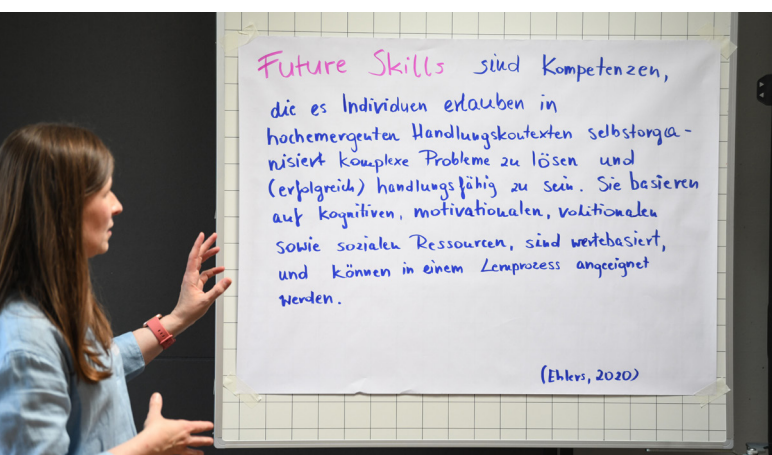 Future Skills sind Kompetenzen,
die es Individuen erlauben in
hochemergenten Handlungskontexten selbstorga-
nisiert komplexe Probleme zu lösen und
(erfolgreich) handlungsfähig zu sein. Sie basieren
auf kognitiven, motivationalen, volitionalen
sowie sozialen Ressourcen, sind wertebasiert,
und können in einem Lernprozess angeeignet
werden.
(Ehlers, 2020)